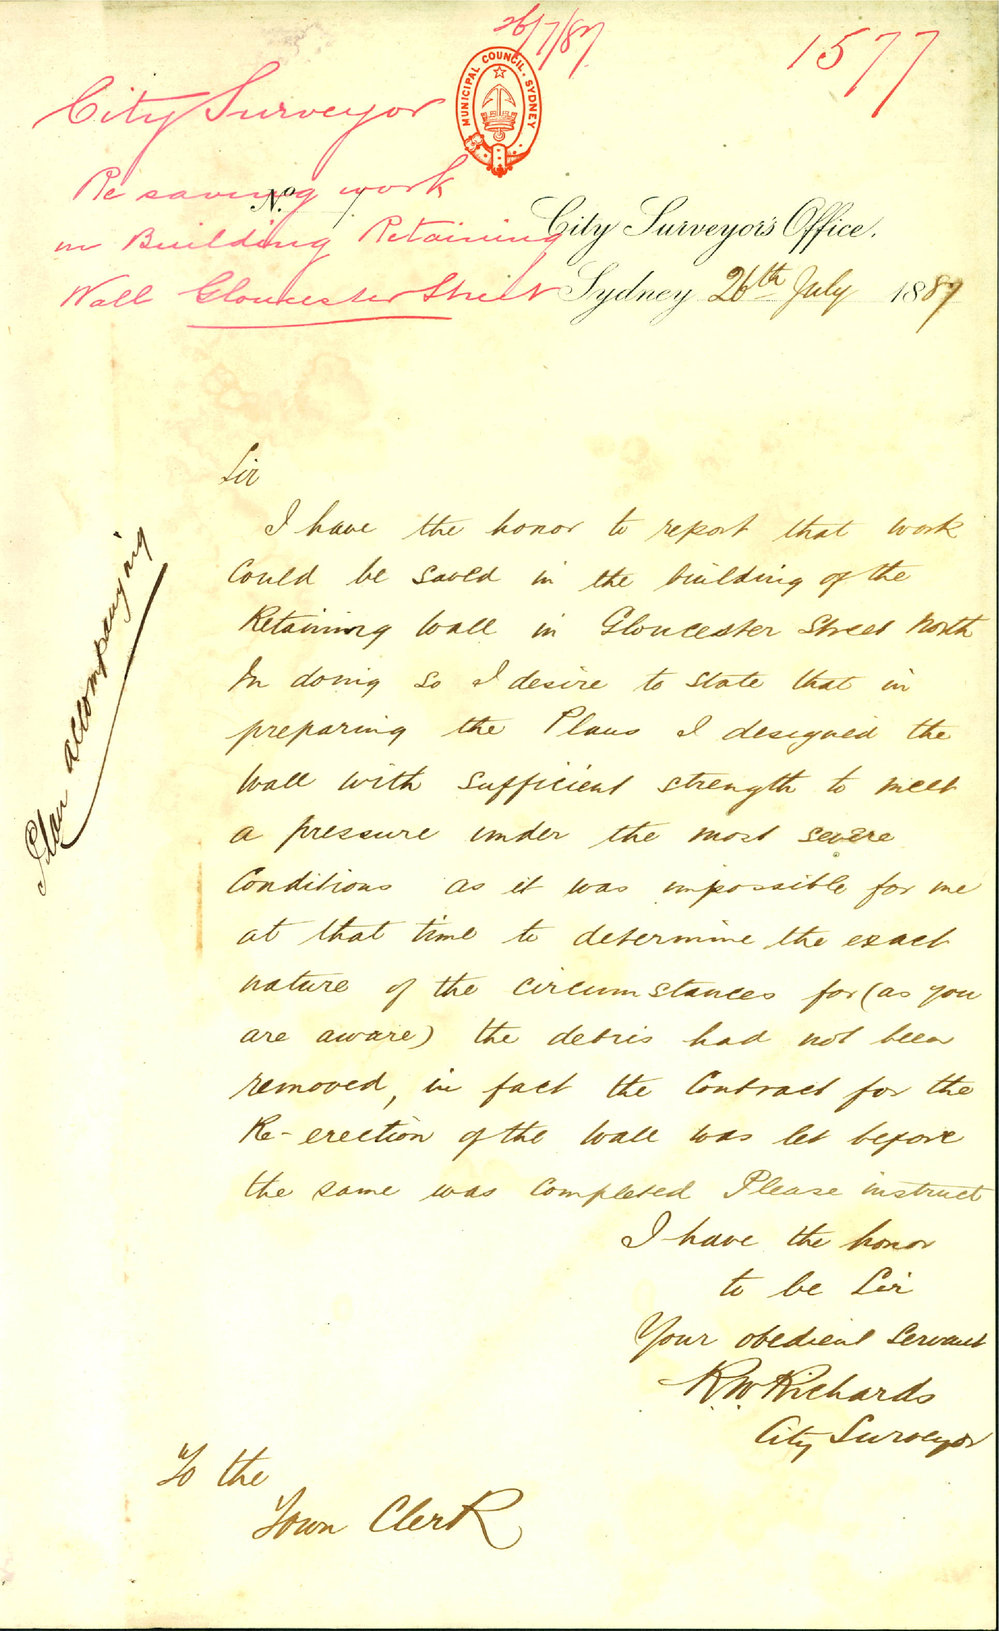 26/7/87
1577
MUNICIPAL COUNCIL. SYDNEY
City Surveyor
Re saving work
in Building Retaining
Wall Gloucester Street
No.
City Surveyor's Office.
Sydney 26th July 1887
Sir
I have the honor to report that work
Could be saved in the building of the
Retaining Wall in Gloucester Street North
In doing so I desire to state that in
preparing the Plans I designed the
Wall with sufficient strength to meet
a pressure under the most severe
Conditions as it was impossible for me
at that time to determine the exact
nature of the circumstances for (as you
are aware) the debris had not been
removed, in fact the Contract for the
Re-erection of the Wall was let before
the same was Completed Please instruct
I have the honor
to be Sir
Your obedient Servant
R.W. Richards
City Surveyor
To the
Town Clerk
Plan accompanying